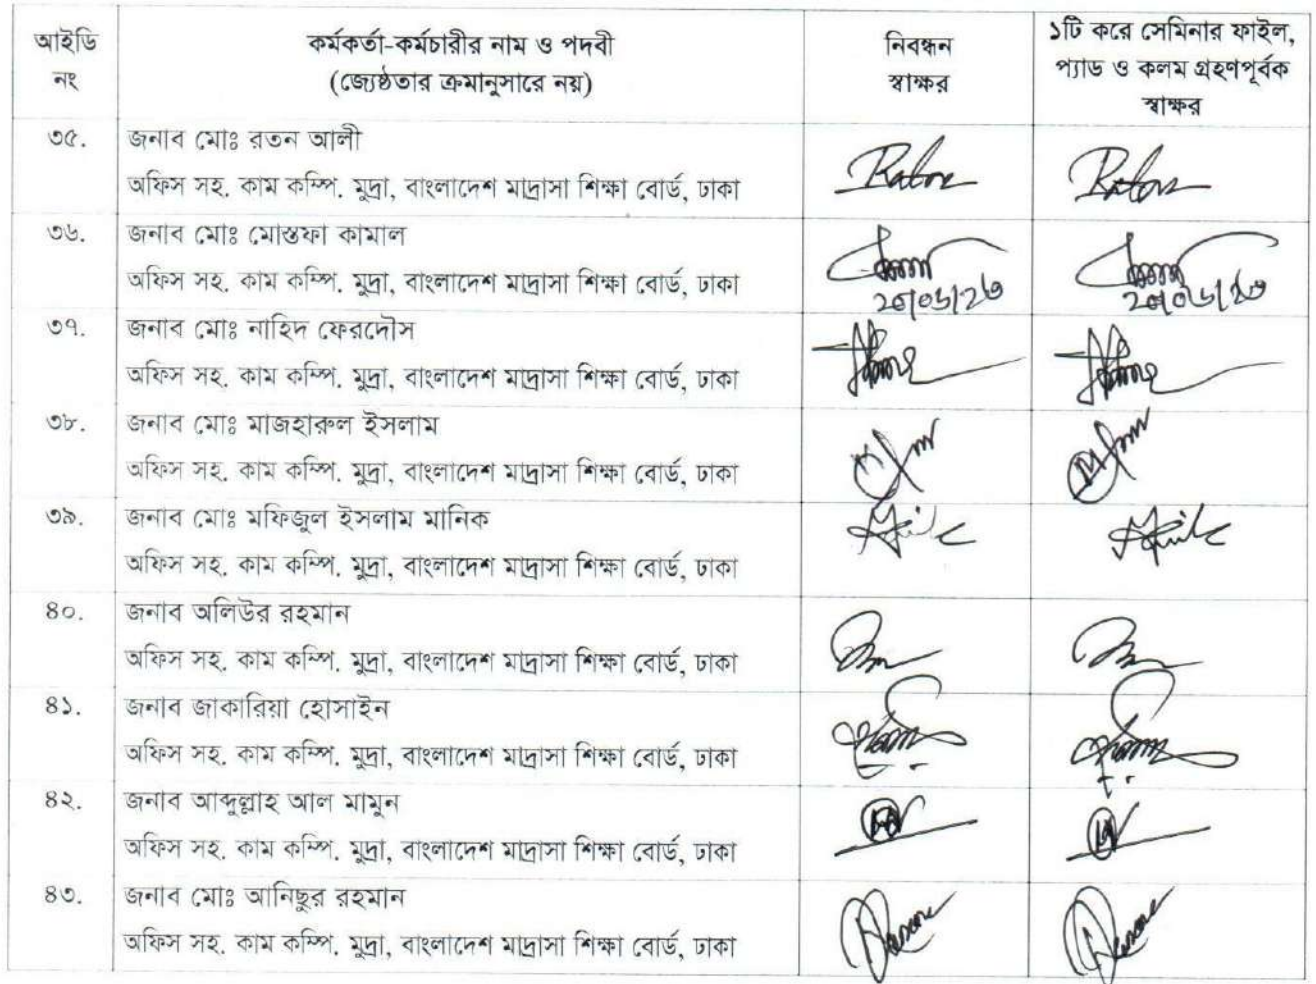 আইডি নং
কর্মকর্তা-কর্মচারীর নাম ও পদবী
(জ্যেষ্ঠতার ক্রমানুসারে নয়)
নিবন্ধন
স্বাক্ষর
১টি করে সেমিনার ফাইল,
প্যাড ও কলম গ্রহণপূর্বক
স্বাক্ষর
৩৫.
জনাব মোঃ রতন আলী
অফিস সহ. কাম কম্পি. মুদ্রা, বাংলাদেশ মাদ্রাসা শিক্ষা বোর্ড, ঢাকা
Raton
Raton
৩৬.
জনাব মোঃ মোস্তফা কামাল
অফিস সহ. কাম কম্পি. মুদ্রা, বাংলাদেশ মাদ্রাসা শিক্ষা বোর্ড, ঢাকা
৩৭.
জনাব মোঃ নাহিদ ফেরদৌস
অফিস সহ. কাম কম্পি. মুদ্রা, বাংলাদেশ মাদ্রাসা শিক্ষা বোর্ড, ঢাকা
৩৮.
জনাব মোঃ মাজহারুল ইসলাম
অফিস সহ. কাম কম্পি. মুদ্রা, বাংলাদেশ মাদ্রাসা শিক্ষা বোর্ড, ঢাকা
৩৯.
জনাব মোঃ মফিজুল ইসলাম মানিক
অফিস সহ. কাম কম্পি. মুদ্রা, বাংলাদেশ মাদ্রাসা শিক্ষা বোর্ড, ঢাকা
৪০.
জনাব অলিউর রহমান
অফিস সহ. কাম কম্পি. মুদ্রা, বাংলাদেশ মাদ্রাসা শিক্ষা বোর্ড, ঢাকা
৪১.
জনাব জাকারিয়া হোসাইন
অফিস সহ. কাম কম্পি. মুদ্রা, বাংলাদেশ মাদ্রাসা শিক্ষা বোর্ড, ঢাকা
৪২.
জনাব আব্দুল্লাহ আল মামুন
অফিস সহ. কাম কম্পি. মুদ্রা, বাংলাদেশ মাদ্রাসা শিক্ষা বোর্ড, ঢাকা
৪৩.
জনাব মোঃ আনিছুর রহমান
অফিস সহ. কাম কম্পি. মুদ্রা, বাংলাদেশ মাদ্রাসা শিক্ষা বোর্ড, ঢাকা